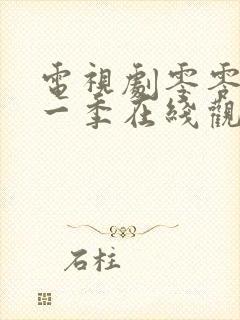 電視劇零零
一季在綫觀
石柱